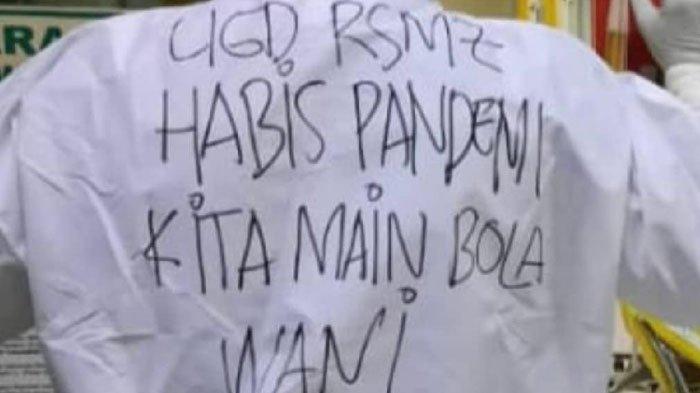 ARA
UGD RSMZ
HABIS PANDEMI
KITA MAIN BOLA
WANI